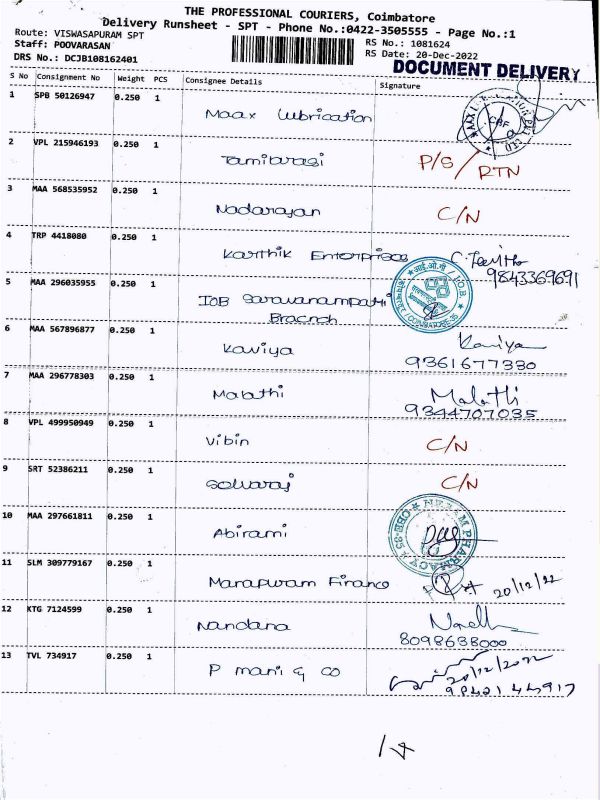 THE PROFESSIONAL COURIERS, Coimbatore
Delivery Runsheet - SPT - Phone No.:0422-3505555 - Page No.:1
Route: VISWASAPURAM SPT
RS No.: 1081624
Staff: POOVARASAN
RS Date: 20-Dec-2022
DRS No.: DCJB108162401
DOCUMENT DELIVERY
S No Consignment No Weight PCS Consignee Details Signature
1 SPB 50126947 0.250 1 Maax Lubrication
2 VPL 215946193 0.250 1 Tamilarasi P/S / RTN
3 MAA 568535952 0.250 1 Nadarajan C/N
4 TRP 4418080 0.250 1 Karthik Enterprises
9843369691
5 MAA 296035955 0.250 1 IOB Saravanampatti
Branch
I.O.B
COIMBATORE-35
6 MAA 567896877 0.250 1 Kaviya Kaviya
9361677330
7 MAA 296778303 0.250 1 Malathi Malathi
9344707035
8 VPL 499950949 0.250 1 Vibin C/N
9 SRT 52386211 0.250 1 Selvaraj C/N
10 MAA 297661811 0.250 1 Abirami
PHARMACY
CBE-35
11 SLM 309779167 0.250 1 Manapuram Finance 20/12/22
12 KTG 7124599 0.250 1 Nandana
8098638000
13 TVL 734917 0.250 1 P mani & co 20/12/2022